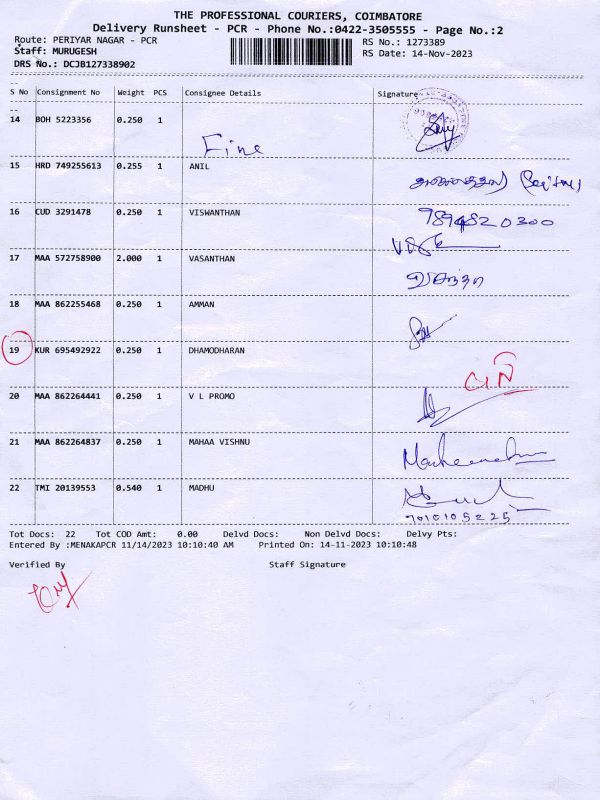 THE PROFESSIONAL COURIERS, COIMBATORE
Delivery Runsheet - PCR - Phone No.:0422-3505555 - Page No.:2
Route: PERIYAR NAGAR - PCR
RS No.: 1273389
Staff: MURUGESH
RS Date: 14-Nov-2023
DRS No.: DCJB127338902
S No Consignment No Weight PCS Consignee Details Signature
14 BOH 5223356 0.250 1
Fine
15 HRD 749255613 0.255 1 ANIL
16 CUD 3291478 0.250 1 VISWANTHAN 9894820300
17 MAA 572758900 2.000 1 VASANTHAN
18 MAA 862255468 0.250 1 AMMAN
19 KUR 695492922 0.250 1 DHAMODHARAN
20 MAA 862264441 0.250 1 V L PROMO
21 MAA 862264837 0.250 1 MAHAA VISHNU
22 TMI 20139553 0.540 1 MADHU
Tot Docs: 22 Tot COD Amt: 0.00 Delvd Docs: Non Delvd Docs: Delvy Pts:
Entered By :MENAKAPCR 11/14/2023 10:10:40 AM Printed On: 14-11-2023 10:10:48
Verified By Staff Signature